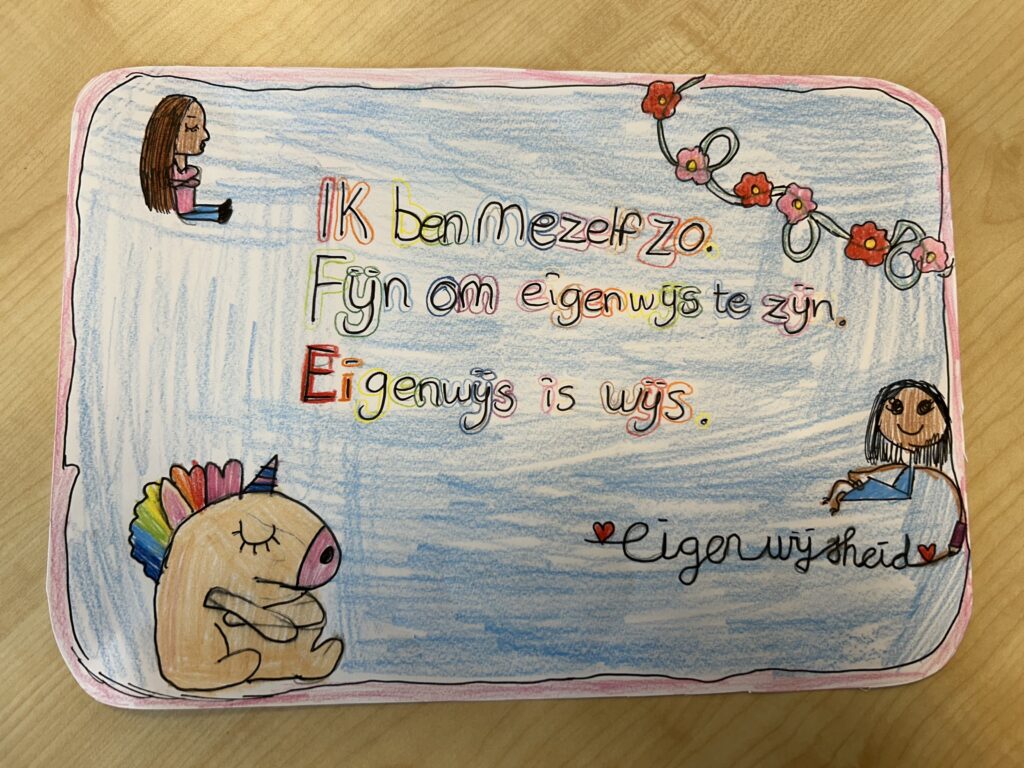 Ik ben mezelf zo.
Fijn om eigenwijs te zijn.
Eigenwijs is wijs.
eigenwijsheid